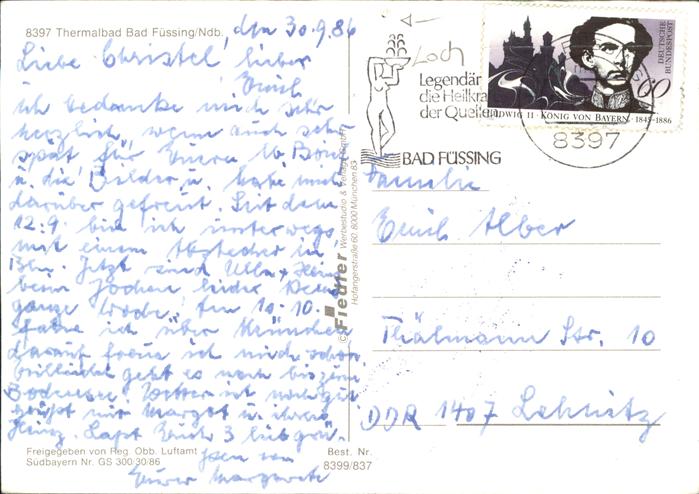 8397 Thermalbad Bad Füssing/Ndb. den 30.9.86
Liebe Christel lieber
Emil
ich bedanke mich sehr
herzlich, wenn auch sehr
spät für Euern lb. Brief
u. die Bilder u. habe mich
darüber gefreut. Seit dem
12.9. bin ich unterwegs
mit einem Abstecher in
Bln. Jetzt sind Ulla + Heinz
beim Jochen leider
ganze Woche! Am 10.10.
fahre ich über München
darauf freue ich mich schon
vielleicht geht es noch bis zum
Bodensee. Wetter ist noch gut
grüßt mir Margot u. ihren
Heinz. Laßt Euch 3 lieb grü-
ßen von
Eurer Margarete
Freigegeben von Reg. Obb. Luftamt
Südbayern Nr. GS 300/30/86
Best. Nr.
8399/837
© Fiedler Werbestudio & Verlag GmbH
Hofangerstraße 60 8000 München 83
Loch
Legendär
die Heilkra
der Quellen
BAD FÜSSING
8397
DEUTSCHE
BUNDESPOST
60
LUDWIG II · KÖNIG VON BAYERN · 1845-1886
Familie
Emil Alber
Thälmann Str. 10
DDR 1407 Lehnitz